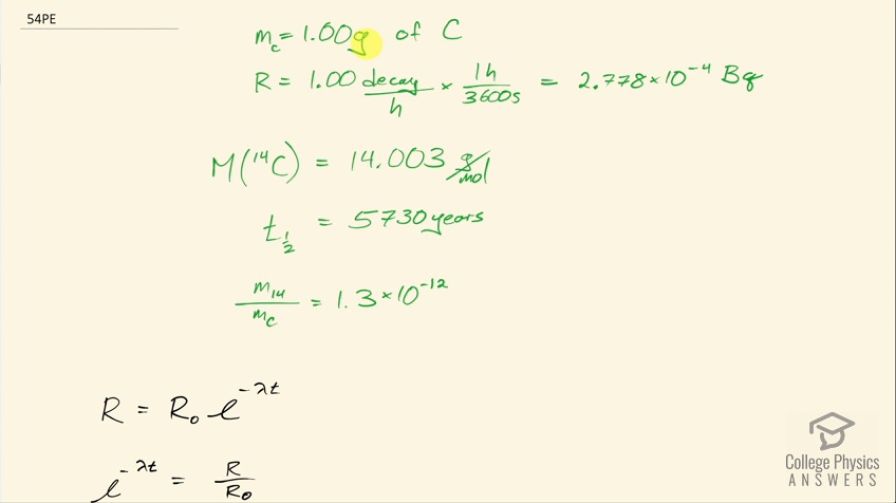 54PE
m_c = 1.00g of C
R = 1.00 decay/h × 1h/3600s = 2.778 × 10^-4 Bq
M(^14C) = 14.003 g/mol
t_1/2 = 5730 years
m_14/m_c = 1.3 × 10^-12
R = R_0 e^-λt
e^-λt = R/R_0
College Physics
ANSWERS